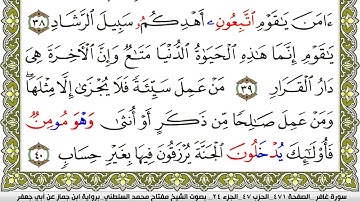 ءَامَنَ يَٰقَوْمِ ٱتَّبِعُونِۦ أَهْدِكُمْ سَبِيلَ ٱلرَّشَادِ ٣٨
يَٰقَوْمِ إِنَّمَا هَٰذِهِ ٱلْحَيَوٰةُ ٱلدُّنْيَا مَتَٰعٌ وَإِنَّ ٱلْأٓخِرَةَ هِىَ
دَارُ ٱلْقَرَارِ ٣٩ مَنْ عَمِلَ سَيِّئَةً فَلَا يُجْزَىٰٓ إِلَّا مِثْلَهَا
وَمَنْ عَمِلَ صَٰلِحًا مِّن ذَكَرٍ أَوْ أُنثَىٰ وَهْوَ مُومِنٌ
فَأُو۟لَٰٓئِكَ يُدْخَلُونَ ٱلْجَنَّةَ يُرْزَقُونَ فِيهَا بِغَيْرِ حِسَابٍ ٤٠
سورة غافر_ الصفحة ٤٧١_ الحزب ٤٧_ الجزء ٢٤_ بصوت الشيخ مفتاح محمد السلطني_ برواية ابن جماز عن أبي جعفر